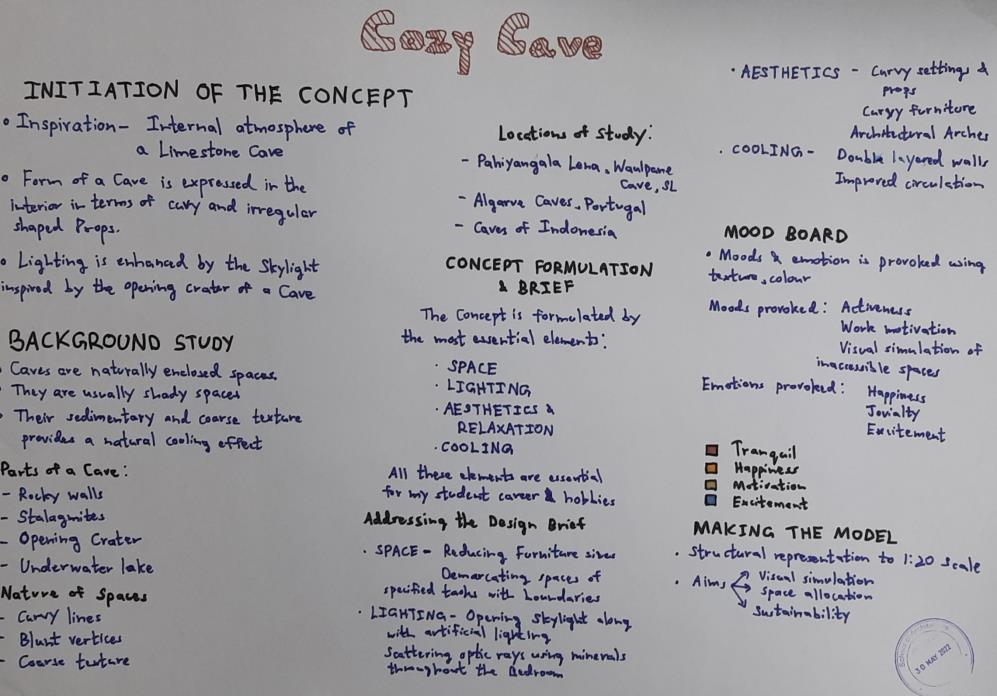 Cozy Cave
INITIATION OF THE CONCEPT
• Inspiration- Internal atmosphere of
a Limestone Cave
• Form of a Cave is expressed in the
interior in terms of curvy and irregular
shaped Props.
• Lighting is enhanced by the Skylight
inspired by the opening crater of a Cave
BACKGROUND STUDY
• Caves are naturally enclosed spaces.
• They are usually shady spaces
• Their sedimentary and coarse texture
provides a natural cooling effect
Parts of a Cave:
- Rocky walls
- Stalagmites
- Opening Crater
- Underwater lake
Nature of Spaces
- Curvy lines
- Blunt vertices
- Coarse texture
Locations of Study:
- Pahiyangala Lena, Waulpane
Cave, SL
- Algarve Caves, Portugal
- Caves of Indonesia
CONCEPT FORMULATION
& BRIEF
The Concept is formulated by
the most essential elements:
· SPACE
· LIGHTING
· AESTHETICS &
RELAXATION
· COOLING
All these elements are essential
for my student career & hobbies
Addressing the Design Brief
· SPACE - Reducing Furniture sizes
Demarcating spaces of
specified tasks with boundaries
· LIGHTING - Opening Skylight along
with artificial lighting
Scattering optic rays using minerals
throughout the Bedroom
· AESTHETICS - Curvy settings &
props
Curvy furniture
Architectural Arches
· COOLING - Double layered walls
Improved circulation
MOOD BOARD
• Moods & emotion is provoked using
texture, colour
Moods provoked: Activeness
Work motivation
Visual simulation of
inaccessible spaces
Emotions provoked: Happiness
Jovialty
Excitement
Tranquil
Happiness
Motivation
Excitement
MAKING THE MODEL
· Structural representation to 1:20 Scale
· Aims Visual simulation
Space allocation
Sustainability
30 MAY 2022